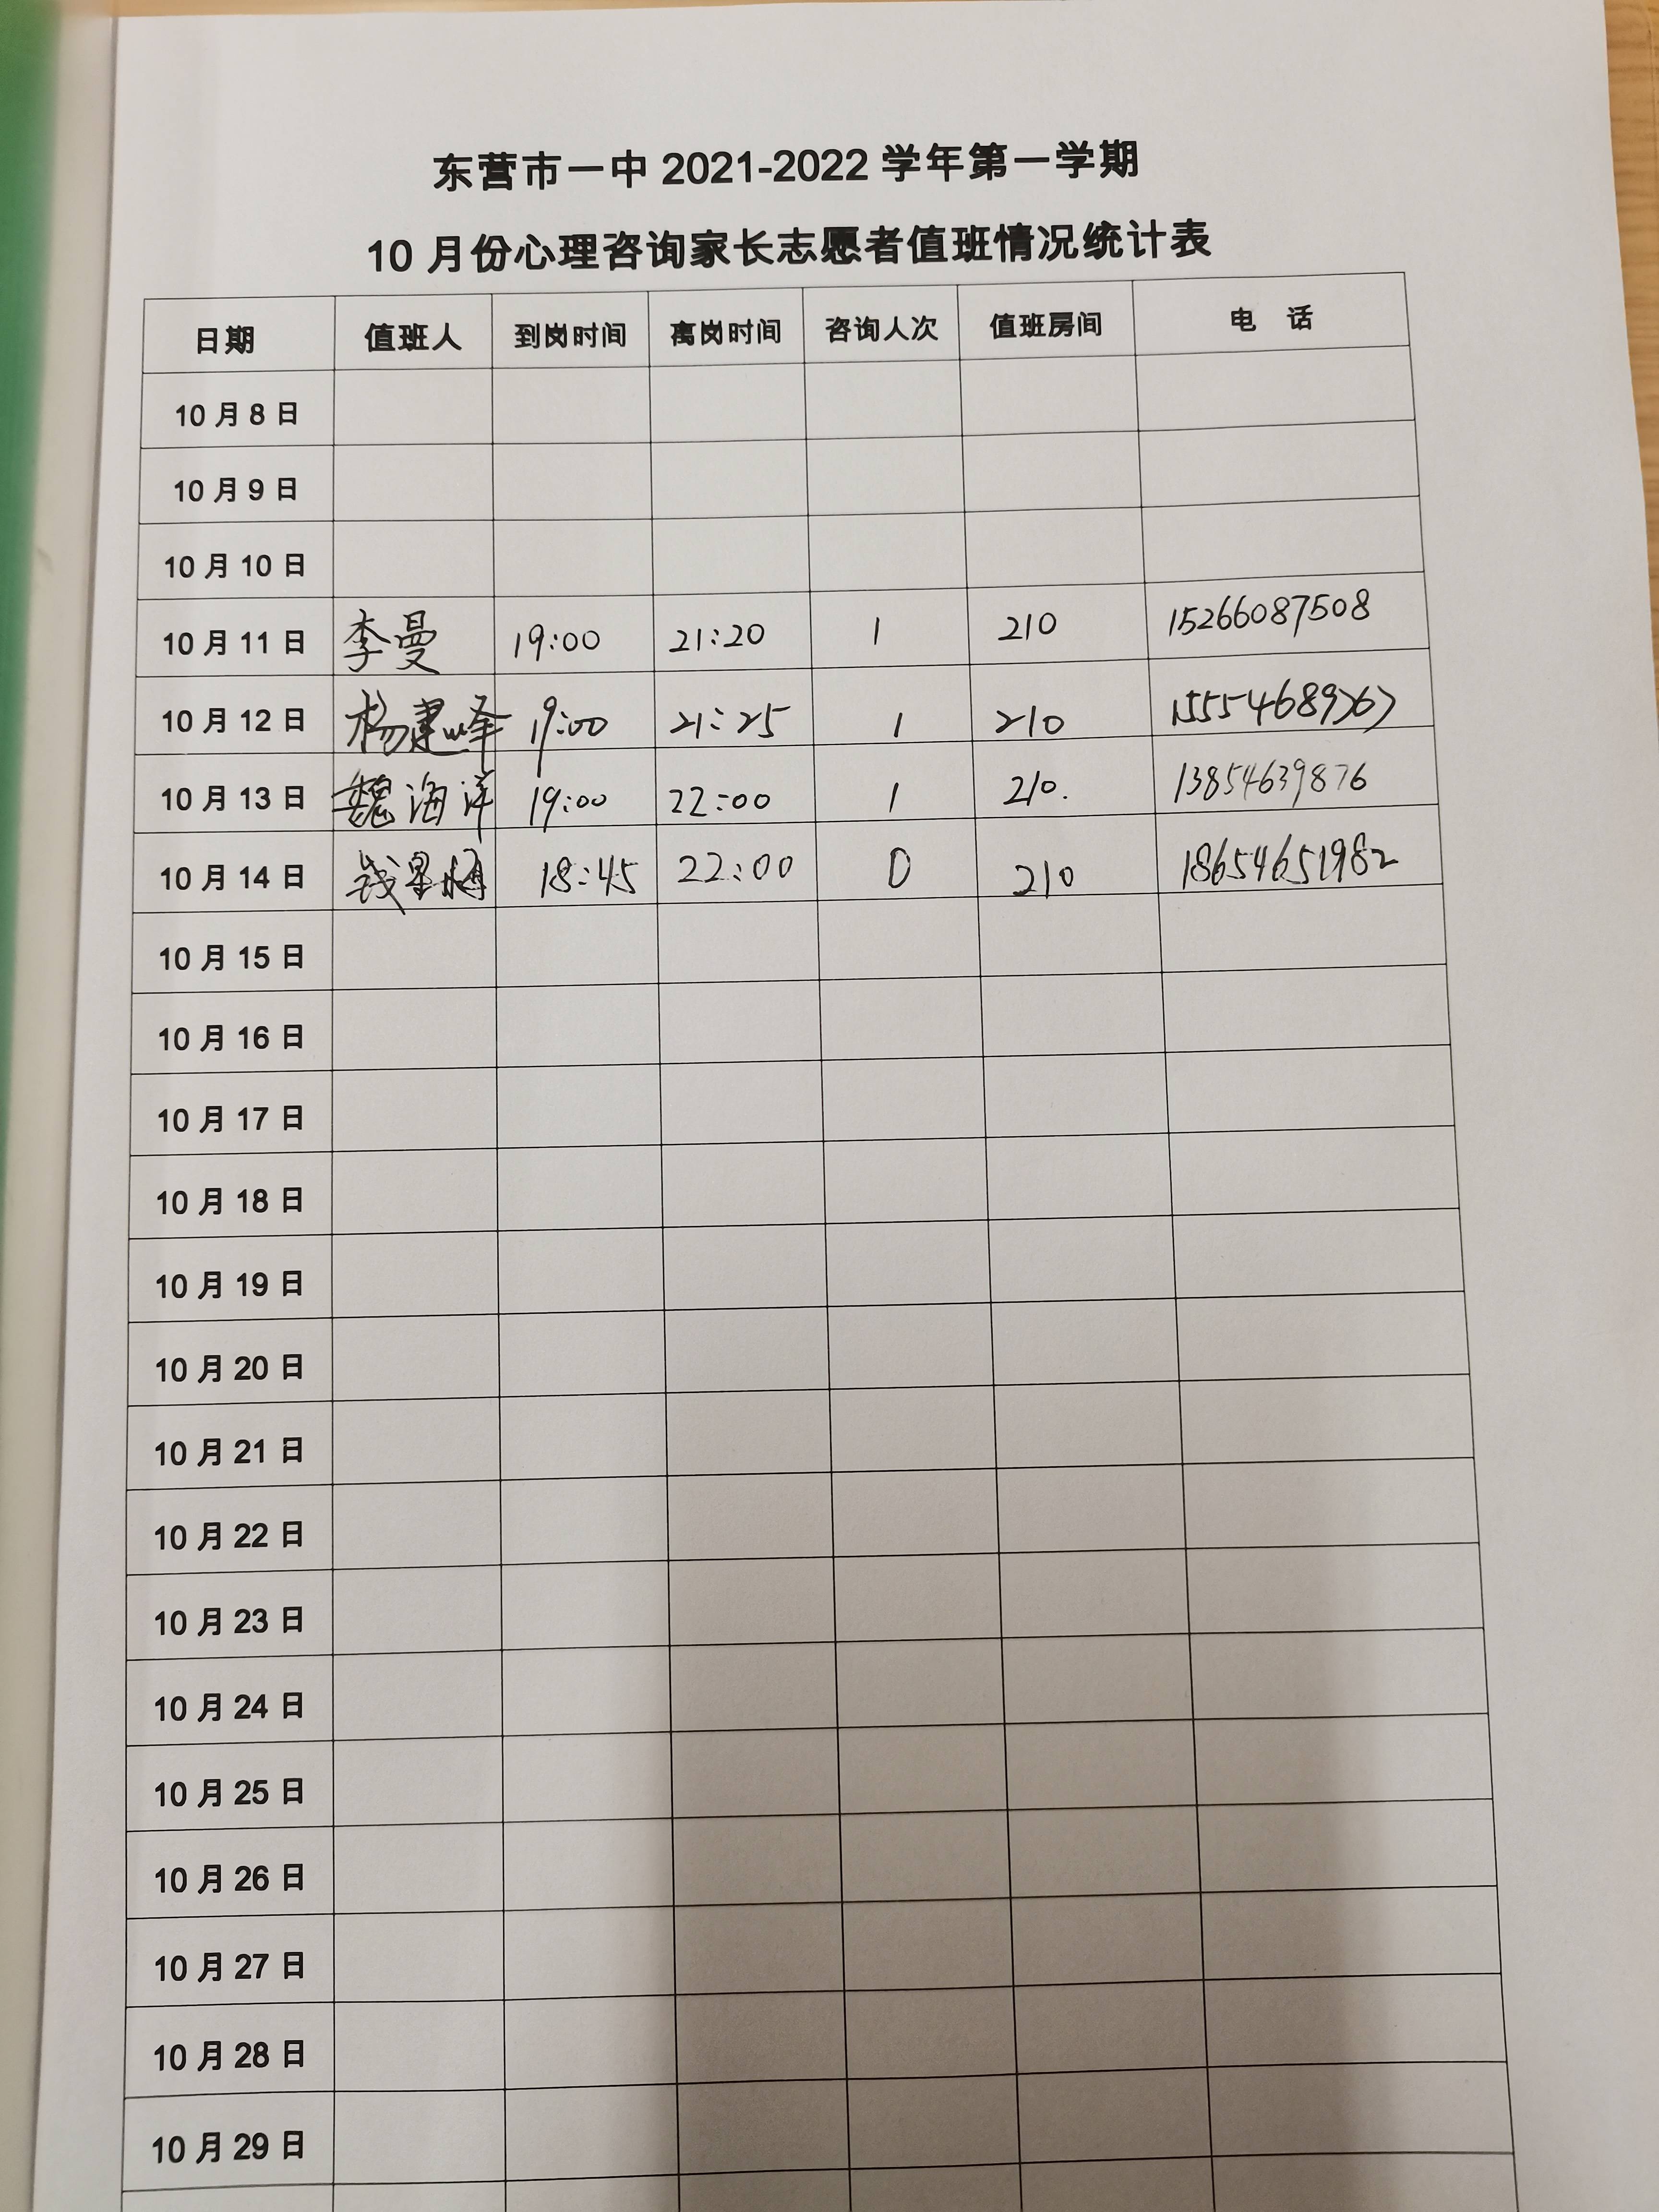 东营市一中 2021-2022 学年第一学期
10 月份心理咨询家长志愿者值班情况统计表
日期 值班人 到岗时间 离岗时间 咨询人次 值班房间 电 话
10 月 8 日
10 月 9 日
10 月 10 日
10 月 11 日 李曼 19:00 21:20 1 210 15266087508
10 月 12 日 杨建峰 19:00 21:25 1 210
10 月 13 日 魏海洋 19:00 22:00 1 210. 13854639876
10 月 14 日 18:45 22:00 0 210 18654651982
10 月 15 日
10 月 16 日
10 月 17 日
10 月 18 日
10 月 19 日
10 月 20 日
10 月 21 日
10 月 22 日
10 月 23 日
10 月 24 日
10 月 25 日
10 月 26 日
10 月 27 日
10 月 28 日
10 月 29 日